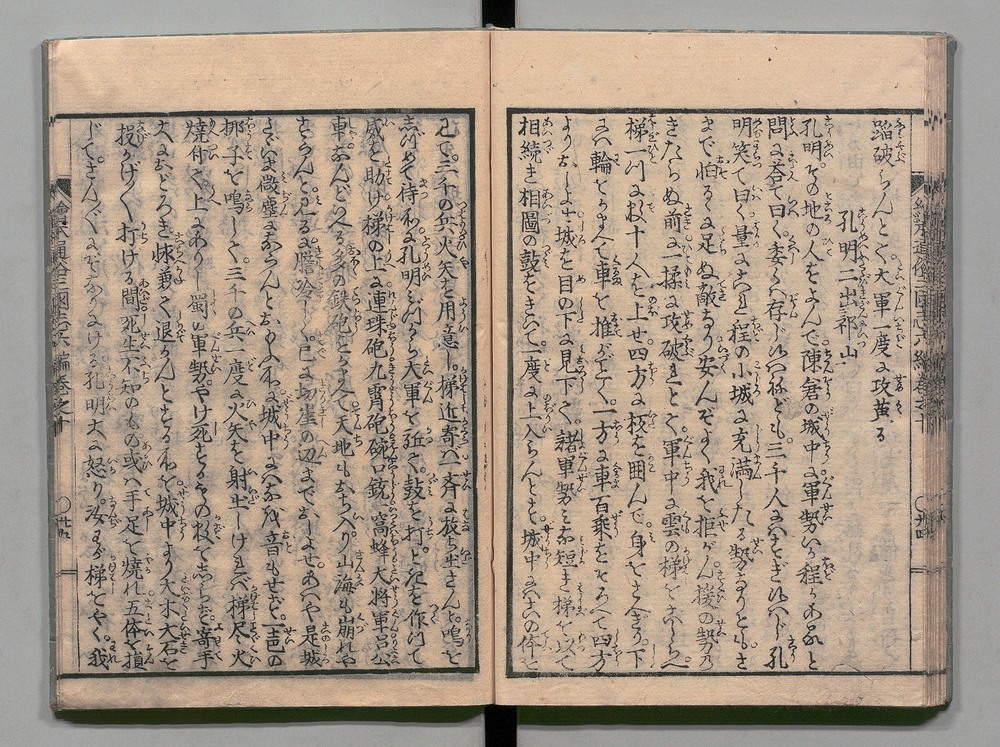 蹈破らんとて大軍一度に攻蒐る
孔明二出祁山
孔明その地の人をよんで陳倉の城中に軍勢いか程かあると
問に荅て曰く委くハ存じ候ハねども三千人にハすぎ候ハじ孔
明笑て曰く量にこれ程の小城に充満したる勢なりとも
まで怕るに足ぬ敵なり安んぞよく我を拒がん援の勢乃
きたらぬ前に一揉に攻破れとて軍中に雲の梯をこしらへ
梯一ツに数十人を上せ四方に板を囲んで身をさへぎり下
にハ輪をかまへて車を推がごとく一方に車百乗をそろへて四方
よりおしよせ城を目の下に見下て諸軍勢ミな短き梯を以て
相続き相圖の鼓をきいて一度に上入らんとす城中にハこの体を
已て三千の兵火矢を用意し梯近寄ハ一斉に放ち出さんと鳴を
志づめて侍ける孔明ミづから大軍を近て鼓を打ときを作りて
威を助け梯の上に連珠砲九霄砲碗口銃窩蜂大将軍呂公
車なんどいへる多の鉄砲をかまへて天地もおち入り山海も崩れや
すらんと見るに膽冷て已に切崖の辺までおしよせあハや是城
たゞいま微塵にならんとおもふ所に城中にハなを音もせず
梛子を鳴して三千の兵一度に火矢を射出しけれバ梯尽く火
焼付て上にありし蜀の軍勢やけ死するもの数をしらず寄手
大におどろき悚動て退かんとする所を城中より大木大石を
投かけ〱打ける間死生不知のもの或ハ手足て焼れ五体を損
じてさん〲になりにける孔明大に怒り汝わが梯をやく我
繪本通俗三國志六編巻之十
廿四